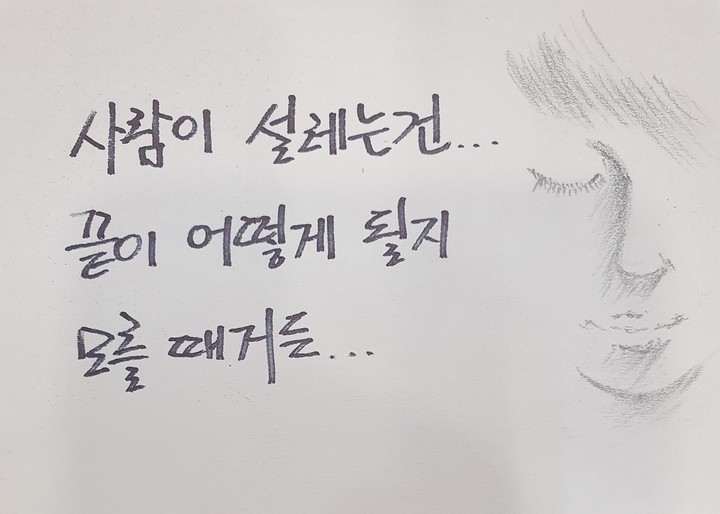 사람이 설레는건...
끝이 어떻게 될지
모를 때거든...